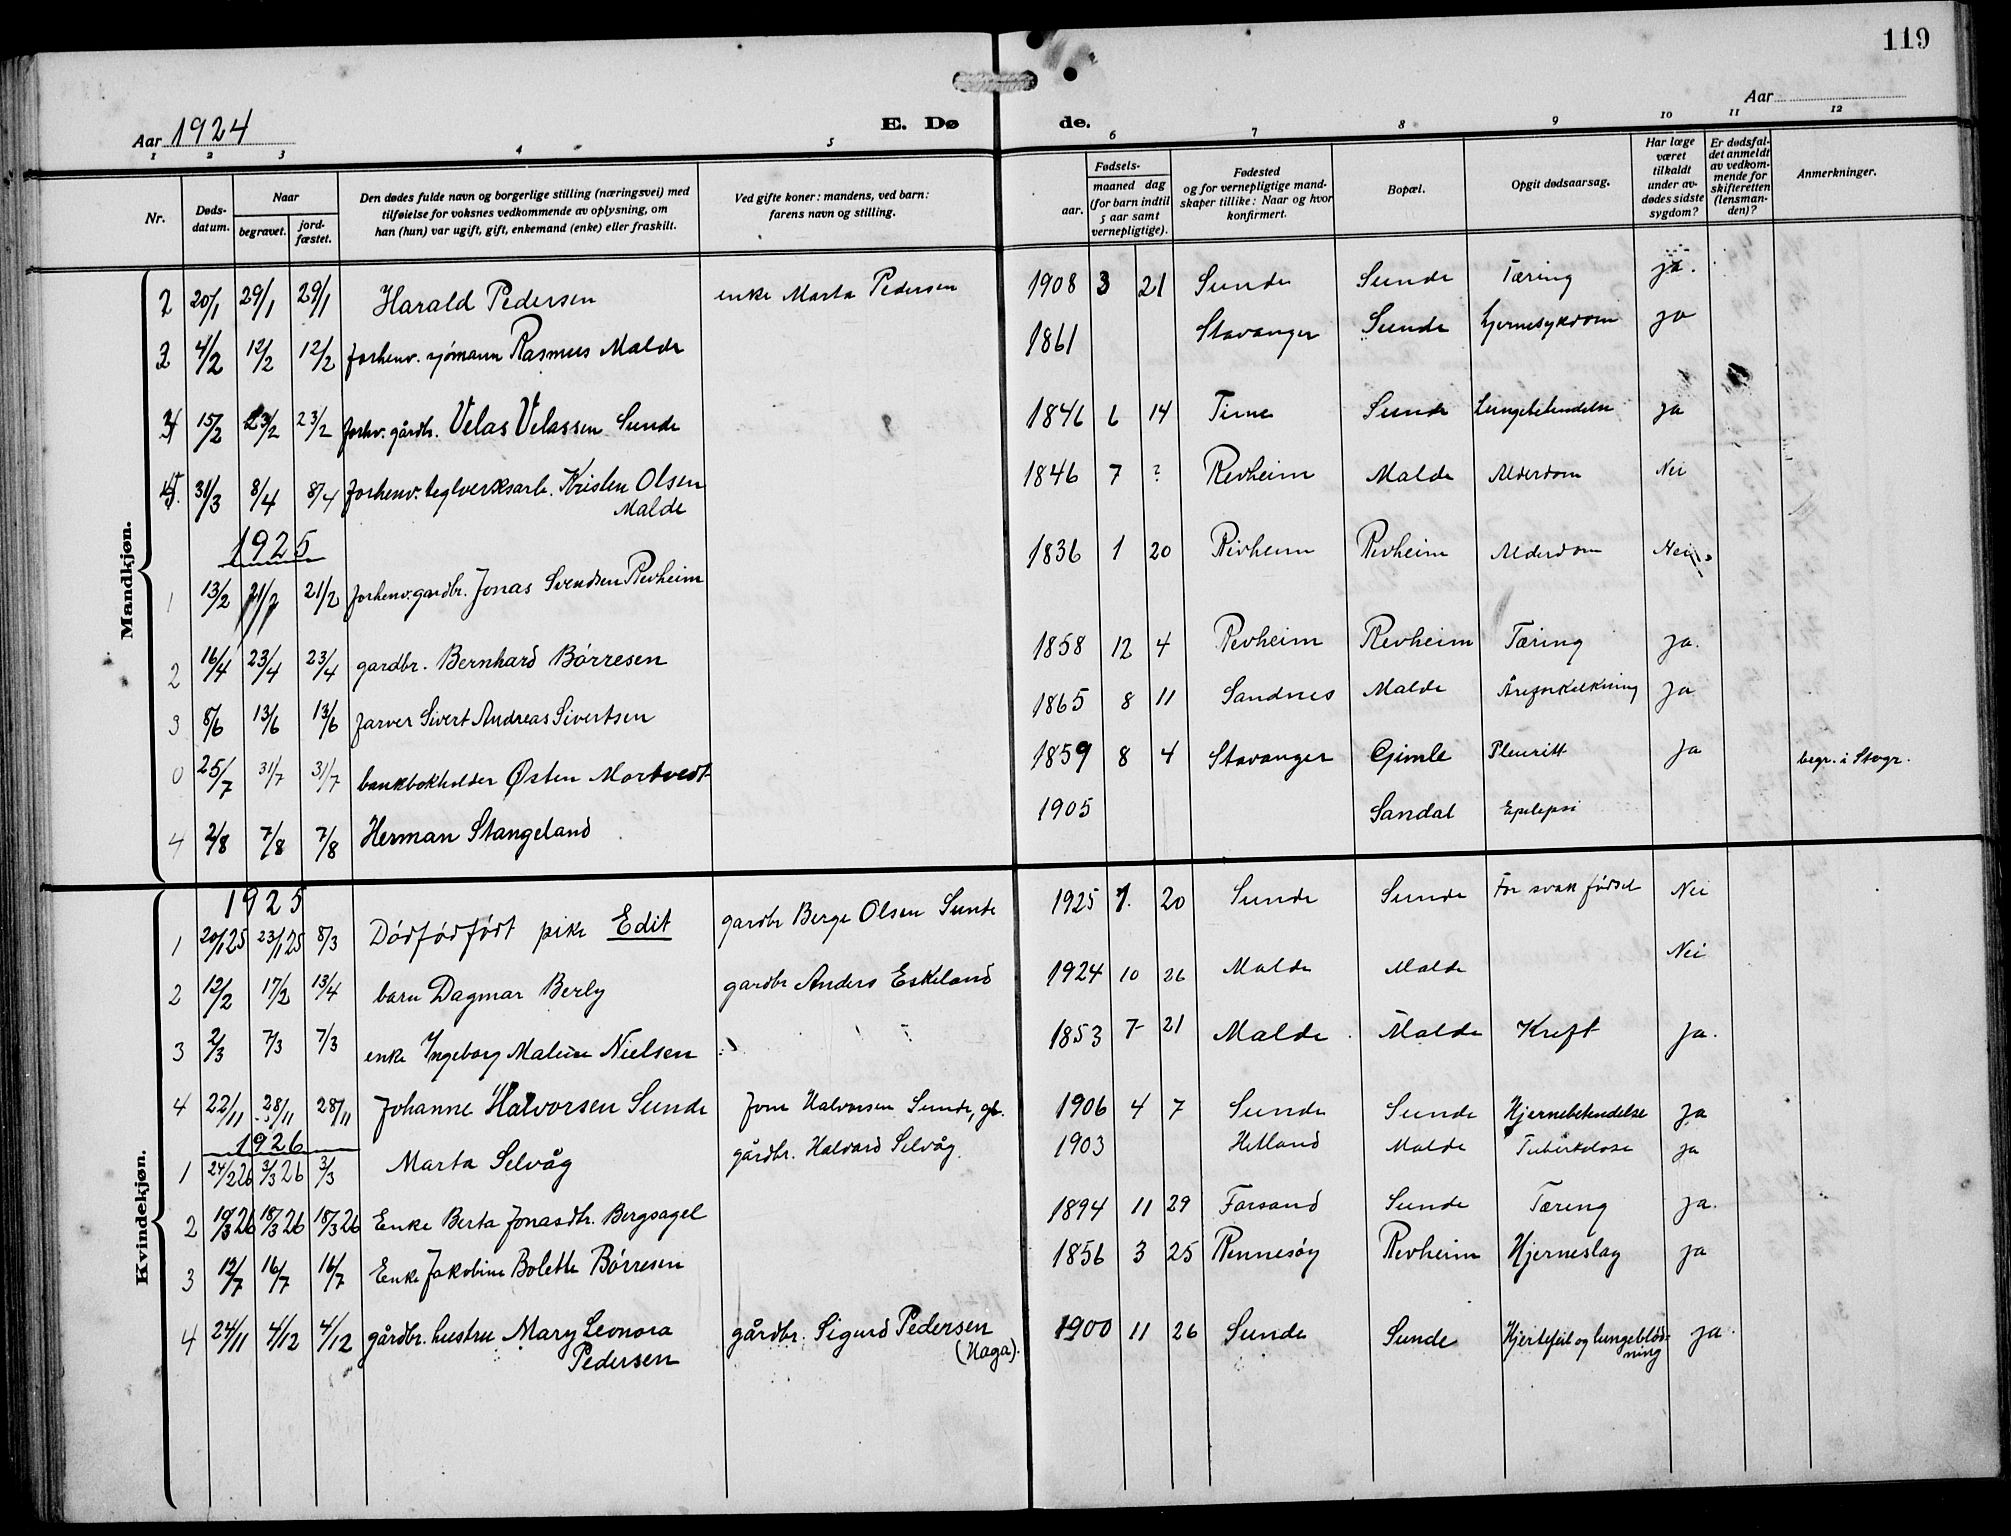 119
Aar 1924 E. Dø de. Aar
1 2 3 4 5 6 7 8 9 10 11 12
Nr.
Døds-
datum.
Naar
begravet.
jord-
fæstet.
Den dødes fulde navn og borgerlige stilling (næringsvei) med
tilføielse for voksnes vedkommende av oplysning, om
han (hun) var ugift, gift, enkemand (enke) eller fraskilt.
Ved gifte koner: mandens, ved barn:
farens navn og stilling.
Fødsels-
aar.
maaned dag
(for barn indtil
5 aar samt
vernepligtige).
Fødested
og for vernepligtige mand-
skaper tillike: Naar og hvor
konfirmert.
Bopæl.
Opgit dødsaarsag.
Har læge
været
tilkaldt
under av-
dødes sidste
sygdom?
Er dødsfal-
det anmeldt
av vedkom-
mende for
skifteretten
(lensman-
den)?
Anmerkninger.
Mandkjøn.
2 20/1 29/1 29/1 Harald Pedersen enke Marta Pedersen 1908 3 21 Sunde Sunde Tæring ja.
3 4/2 12/2 12/2 forhenv. sjömann Rasmus Malde 1861 Stavanger Sunde hjernesykdom ja
4 15/2 23/2 23/2 forhv. gårdb. Velas Velassen Sunde 1846 6 14 Time Sunde Lungebetendelse ja
5. 31/3 8/4 8/4 forhenv. teglverksarb. Kristen Olsen 1846 7 ? Revheim Malde Alderdom Nei
Malde
1925
1 13/2 21/2 21/2 forhenv. gardbr. Jonas Svendsen Revheim 1836 1 20 Revheim Revheim Alderdom Nei
2 16/4 23/4 23/4 gardbr. Bernhard Börresen 1858 12 4 Revheim Revheim Tæring ja.
3 8/6 13/6 13/6 farver Sivert Andreas Sivertsen 1865 8 11 Sandnes Malde Åreforkalkning ja
0 25/7 31/7 31/7 bankbokholder Østen Mortvedt 1859 8 4 Stavanger Gimle Pleuritt ja begr. i Stvgr.
4 2/8 7/8 7/8 Herman Stangeland 1905 Sandal Epilepsi
Kvindekjøn.
1925
1 20/1 25 23/1 25 8/3 Dödfödfödt pike Edit gardbr Berge Olsen Sunde 1925 1. 20 Sunde Sunde For svak födsel Nei
2 12/2 17/2 13/4 barn Dagmar Berly gardbr Anders Eskeland 1924 10 26 Malde Malde Nei
3 2/3 7/3 7/3 enke Ingeborg Maline Nielsen 1853 7 21 Malde Malde Kreft Ja.
4 22/11 28/11 28/11 Johanne Halvorsen Sunde Jone Halvorsen Sunde, gb. 1906 4 7 Sunde Sunde Hjernebetendelse ja
1926
1 24/2 26 3/3 26 3/3 Marta Selvåg gårdbr. Halvard Selvåg. 1903 Hetland Malde Tuberkulose ja
2 10/3 26 18/3 26 18/3 26 Enke Berta Jonasdtr. Bergsagel 1894 11 29 Forsand Sunde Tæring ja.
3 12/7 16/7 16/7 Enke Jakobine Bolette Börresen 1856 3 25 Rennesöy Revheim Hjerneslag ja
4 24/11 4/12 4/12 gårdbr. hustru Mary Leonora gårdbr. Sigurd Pedersen 1900 11 26 Sunde Sunde Hjertefeil og lungeblöd- ja.
Pedersen (Haga). ning